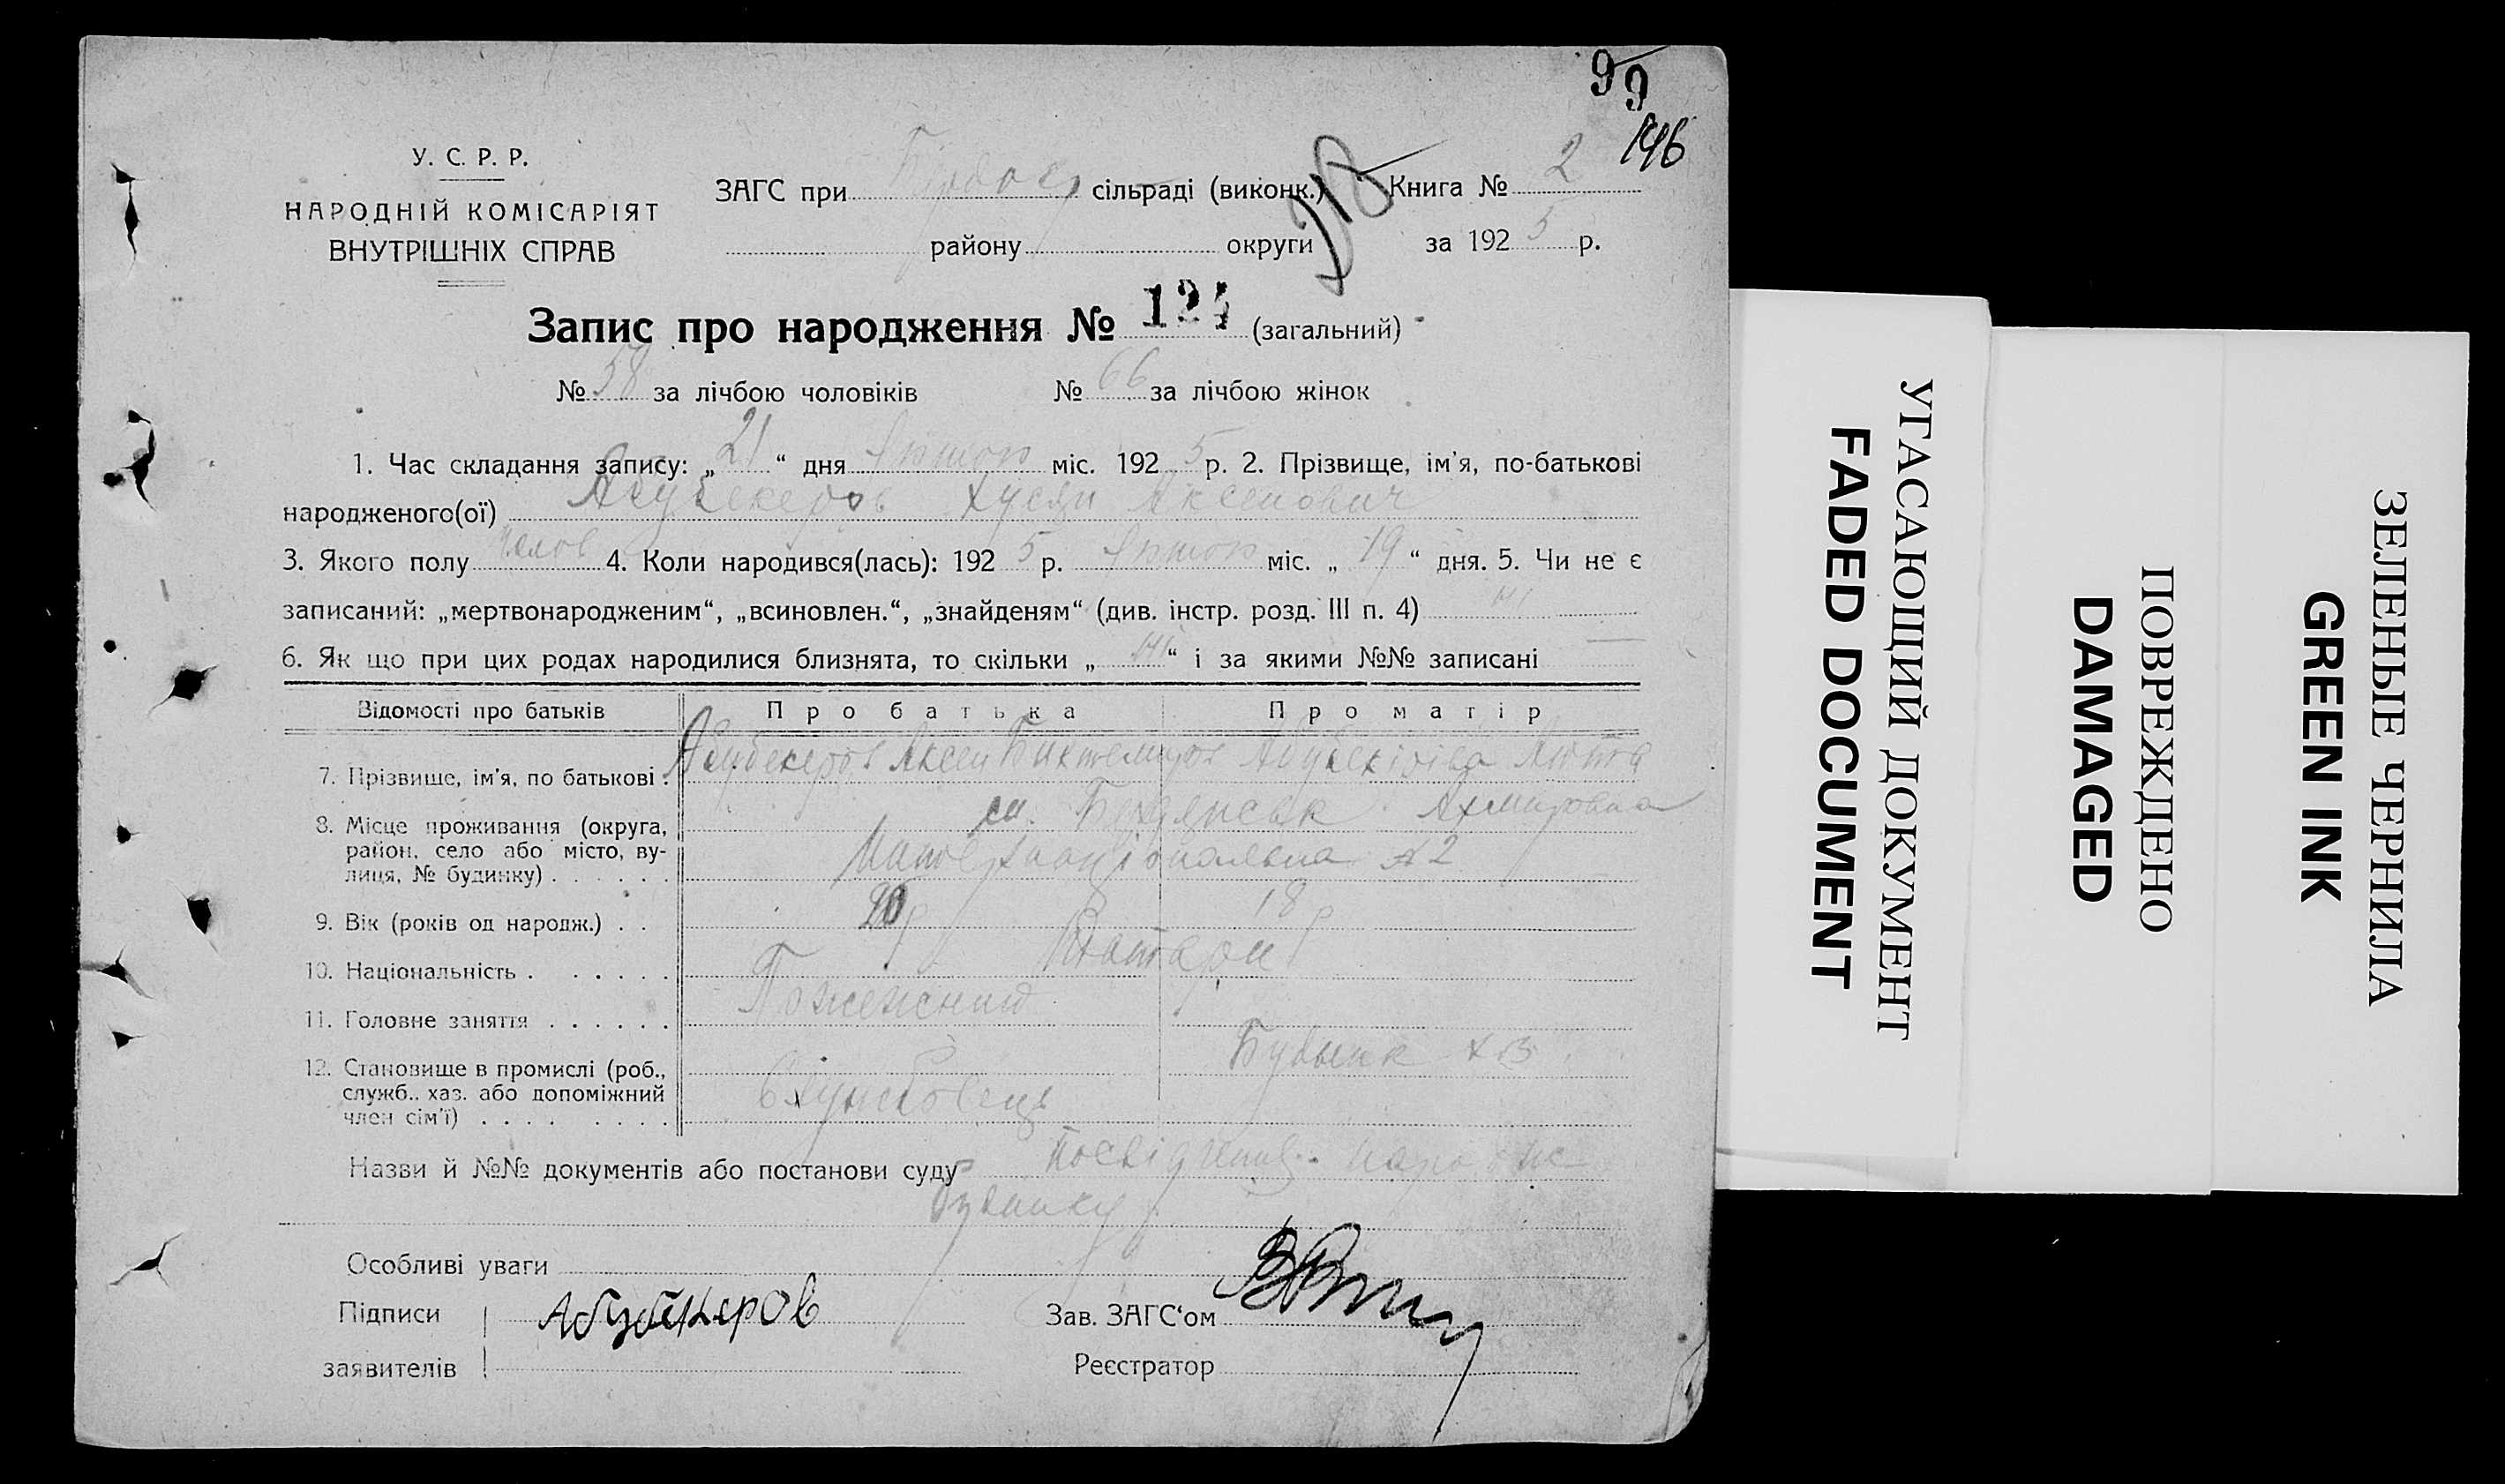 99
146
У. С. Р. Р.
НАРОДНІЙ КОМІСАРІЯТ
ВНУТРІШНІХ СПРАВ
ЗАГС при сільраді (виконк.) Книга № 2
району округи за 192 5 р.
218
Запис про народження № 124 (загальний)
№ 58 за лічбою чоловіків № 66 за лічбою жінок
1. Час складання запису: „ 21 “ дня міс. 192 5 р. 2. Прізвище, ім'я, по-батькові
народженого(ої) Абубекеров Аксенович
3. Якого полу чолов 4. Коли народився(лась): 192 5 р. міс. „ 19 “ дня. 5. Чи не є
записаний: „мертвонародженим“, „всиновлен.“, „знайденям“ (див. інстр. розд. III п. 4) ні
6. Як що при цих родах народилися близнята, то скільки „ ні “ і за якими №№ записані
Відомості про батьків Про батька Про матір
7. Прізвище, ім'я, по батькові . Абубекеров Аксен
8. Місце проживання (округа, м.
район, село або місто, ву-
лиця, № будинку) . . . . . . 2
9. Вік (років од народж.) . . 20 р 18 р
10. Національність . . . . . . Татари
11. Головне заняття . . . . . . Пожежний
12. Становище в промислі (роб.,
служб., хаз. або допоміжний Службовець
член сім'ї) . . . . . . . .
Назви й №№ документів або постанови суду
будинку
Особливі уваги
Підписи Абубекеров Зав. ЗАГС‘ом
заявителів Реєстратор
УГАСАЮЩИЙ ДОКУМЕНТ
FADED DOCUMENT
ПОВРЕЖДЕНО
DAMAGED
ЗЕЛЕНЫЕ ЧЕРНИЛА
GREEN INK